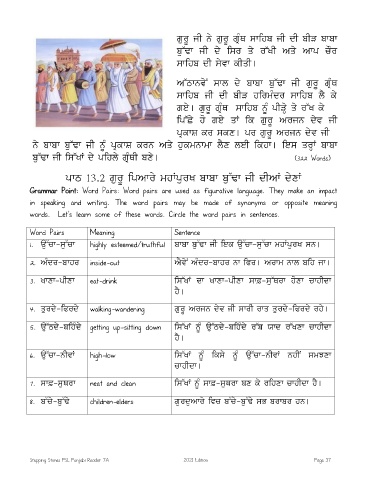 ਗੁਰੂ ਜੀ ਨੇ ਗੁਰੂ ਗ੍ਰੰਥ ਸਾਹਿਬ ਜੀ ਦੀ ਬੀੜ ਬਾਬਾ
ਬੁੱਢਾ ਜੀ ਦੇ ਸਿਰ ਤੇ ਰੱਖੀ ਅਤੇ ਆਪ ਚੌਰ
ਸਾਹਿਬ ਦੀ ਸੇਵਾ ਕੀਤੀ।
ਅੱਠਾਨਵੇਂ ਸਾਲ ਦੇ ਬਾਬਾ ਬੁੱਢਾ ਜੀ ਗੁਰੂ ਗ੍ਰੰਥ
ਸਾਹਿਬ ਜੀ ਦੀ ਬੀੜ ਹਰਿਮੰਦਰ ਸਾਹਿਬ ਲੈ ਕੇ
ਗਏ। ਗੁਰੂ ਗ੍ਰੰਥ ਸਾਹਿਬ ਨੂੰ ਪੀੜ੍ਹੇ ਤੇ ਰੱਖ ਕੇ
ਪਿੱਛੇ ਹੋ ਗਏ ਤਾਂ ਕਿ ਗੁਰੂ ਅਰਜਨ ਦੇਵ ਜੀ
ਪ੍ਰਕਾਸ਼ ਕਰ ਸਕਣ। ਪਰ ਗੁਰੂ ਅਰਜਨ ਦੇਵ ਜੀ
ਨੇ ਬਾਬਾ ਬੁੱਢਾ ਜੀ ਨੂੰ ਪ੍ਰਕਾਸ਼ ਕਰਨ ਅਤੇ ਹੁਕਮਨਾਮਾ ਲੈਣ ਲਈ ਕਿਹਾ। ਇਸ ਤਰ੍ਹਾਂ ਬਾਬਾ
ਬੁੱਢਾ ਜੀ ਸਿੱਖਾਂ ਦੇ ਪਹਿਲੇ ਗ੍ਰੰਥੀ ਬਣੇ। (322 Words)
ਪਾਠ 13.2 ਗੁਰੂ ਪਿਆਰੇ ਮਹਾਂਪੁਰਖ ਬਾਬਾ ਬੁੱਢਾ ਜੀ ਦੀਆਂ ਦੇਣਾਂ
Grammar Point: Word Pairs: Word pairs are used as figurative language. They make an impact
in speaking and writing. The word pairs may be made of synonyms or opposite meaning
words. Let's learn some of these words. Circle the word pairs in sentences.
Word Pairs Meaning Sentence
1. ਉੱਚਾ-ਸੁੱਚਾ highly esteemed/truthful ਬਾਬਾ ਬੁੱਢਾ ਜੀ ਇਕ ਉੱਚਾ-ਸੁੱਚਾ ਮਹਾਂਪੁਰਖ ਸਨ।
2. ਅੰਦਰ-ਬਾਹਰ inside-out ਐਵੇਂ ਅੰਦਰ-ਬਾਹਰ ਨਾ ਫਿਰ। ਅਰਾਮ ਨਾਲ ਬਹਿ ਜਾ।
3. ਖਾਣਾ-ਪੀਣਾ eat-drink ਸਿੱਖਾਂ ਦਾ ਖਾਣਾ-ਪੀਣਾ ਸਾਫ਼-ਸੁੱਥਰਾ ਹੋਣਾ ਚਾਹੀਦਾ
ਹੈ।
4. ਤੁਰਦੇ-ਫਿਰਦੇ walking-wandering ਗੁਰੂ ਅਰਜਨ ਦੇਵ ਜੀ ਸਾਰੀ ਰਾਤ ਤੁਰਦੇ-ਫਿਰਦੇ ਰਹੇ।
5. ਉੱਠਦੇ-ਬਹਿੰਦੇ getting up-sitting down ਸਿੱਖਾਂ ਨੂੰ ਉੱਠਦੇ-ਬਹਿੰਦੇ ਰੱਬ ਯਾਦ ਰੱਖਣਾ ਚਾਹੀਦਾ
ਹੈ।
6. ਉੱਚਾ-ਨੀਵਾਂ high-low ਸਿੱਖਾਂ ਨੂੰ ਕਿਸੇ ਨੂੰ ਉੱਚਾ-ਨੀਵਾਂ ਨਹੀਂ ਸਮਝਣਾ
ਚਾਹੀਦਾ।
7. ਸਾਫ਼-ਸੁਥਰਾ neat and clean ਸਿੱਖਾਂ ਨੂੰ ਸਾਫ਼-ਸੁਥਰਾ ਬਣ ਕੇ ਰਹਿਣਾ ਚਾਹੀਦਾ ਹੈ।
8. ਬੱਚੇ-ਬੁੱਢੇ children-elders ਗੁਰਦੁਆਰੇ ਵਿਚ ਬੱਚੇ-ਬੁੱਢੇ ਸਭ ਬਰਾਬਰ ਹਨ।
Stepping Stones PSL Punjabi Reader 7A 2021 Edition Page 37